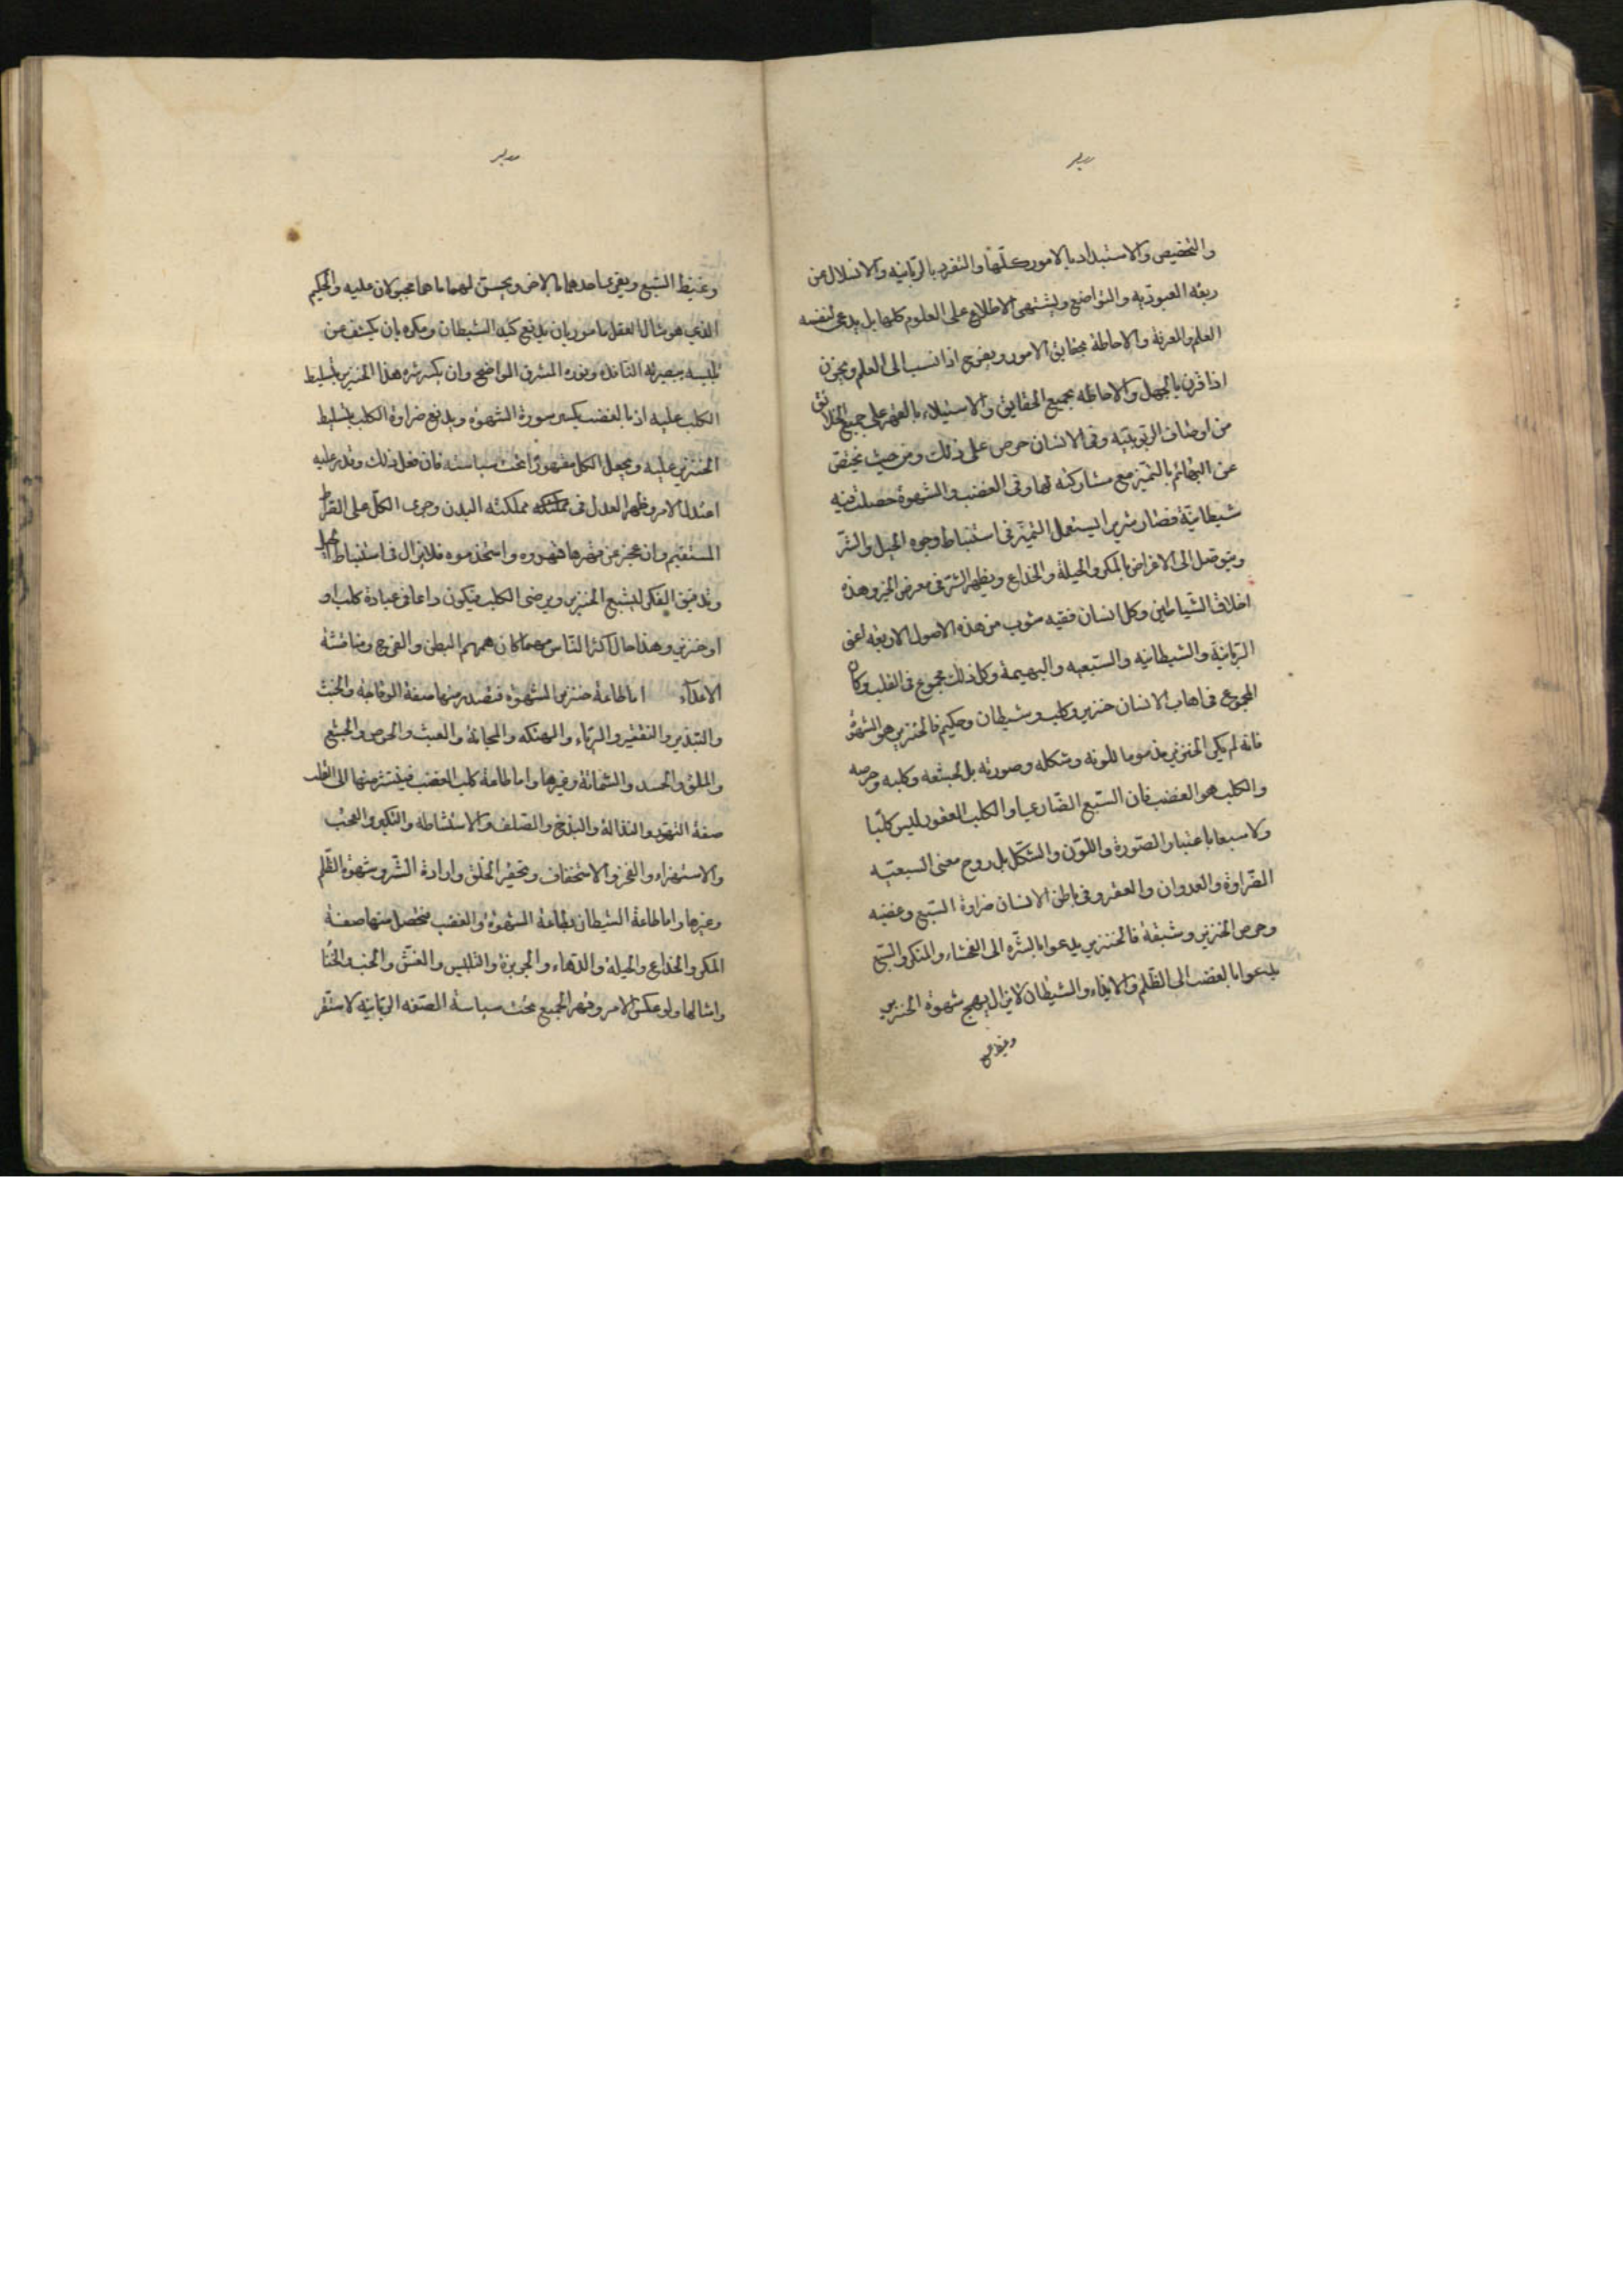 والتخصيص والاستبداد بالامور كلّها والتفرد بالربّانيه والانسلال عن
ربقه العبوديه والتواضع ويشتهى الاطلاع على العلوم كلها بل يدعى لنفسه
العلم والمعرفة والاحاطة بحقايق الامور ويفرح اذا نسب الى العلم ويحزن
اذا قرن بالجهل والاحاطه بجميع الحقايق والاستيلاء بالقهر على جميع الخلائق
من اوصاف الربوبيّه وفى الانسان حرص على ذلك ومن حيث يختص
عن البهائم بالتميز مع مشاركته لها وفى الغضب والشهوة حصلت فيه
شيطانيّة فصار شريرا يستعمل التميّز فى استنباط وجوه الحيل والشرّ
ويتوصل الى الاغراض بالمكر والحيلة والخداع ويظهر الشر فى معرض الخير وهذه
اخلاق الشياطين وكل انسان ففيه شوب من هذه الاصول الاربعه اعنى
الربّانيّة والشيطانيه والسّبعيه والبهيمة وكل ذلك مجموع فى القلب وكان
المجموع فى اهاب الانسان خنزير وكلب وشيطان وحكيم فالخنزير هو الشهوة
فانه لم يكن الخنزير مذموما للونه وشكله وصورته بل لجشعه وكلبه وحرصه
والكلب هو الغضب فان السّبع الضّارى والكلب العقور ليس كلبا
ولا سبعا باعتبار الصّورة واللّون والشّكل بل روح معنى السبعيّه
الضّراوة والعدوان والعقر وفى باطن الانسان ضراوة السّبع وغضبه
وحرص الخنزير وشبقه فالخنزير يدعوا بالشّره الى الفحشاء والمنكر والسّبع
يدعوا بالغضب الى الظّلم والايذاء والشيطان لا يزال يهيج شهوة الخنزير
وغيظ السّبع
وغيظ السّبع ويغرى احدهما بالاخر ويحسن لهما ما هما مجبولان عليه والحكيم
الذى هو مثال العقل مامور بان يدفع كيد الشيطان ومكره بان يكشف عن
تلبيسه ببصيرته النافذه ونوره المشرق الواضح وان يكسر شره هذا الخنزير بتسليط
الكلب عليه اذ بالغضب يكسر سورة الشهوة ويدفع ضراوة الكلب بتسليط
الخنزير عليه ويجعل الكل مقهورا تحت سياسته فان فعل ذلك وقدر عليه
اعتدل الامر وظهر العدل فى مملكته مملكته البدن وجرى الكلّ على الصراط
المستقيم وان عجز عن قهرها قهروه واستخدموه فلا يزال فى استنباط الحيل
وتدقيق الفكر ليشبع الخنزير ويرضى الكلب فيكون دائما فى عبادة كلب او
او خنزير وهذا حال اكثر النّاس مهما كان همهم البطن والفرج ومنافسة
الاعدآء اما طاعة خنزير الشهوة فتصدر منها صفة الوقاحة والخبث
والتبذير والتقتير والريّاء والهتكه والمجانة والعبث والحرص والجشع
والملق والحسد والشماتة وغيرها واما طاعة كلب الغضب فينتشر منها الى القلب
صفة التهوّر والنذالة والبذخ والصّلف والاستشاطة والتكبر والعجب
والاستهزاء والفخر والاستخفاف وتحقير الخلق وارادة الشّر وشهوة الظّلم
وغيرها واما طاعة الشيطان بطاعة الشهوة والغضب فتحصل منها صفة
المكر والخداع والحيلة والدهاء والجربزة والتلبيس والغشّ والخب والخَنا
وامثالها ولو عكس الامر وقهر الجميع تحت سياسة الصّفه الربّانيّه لاستقر